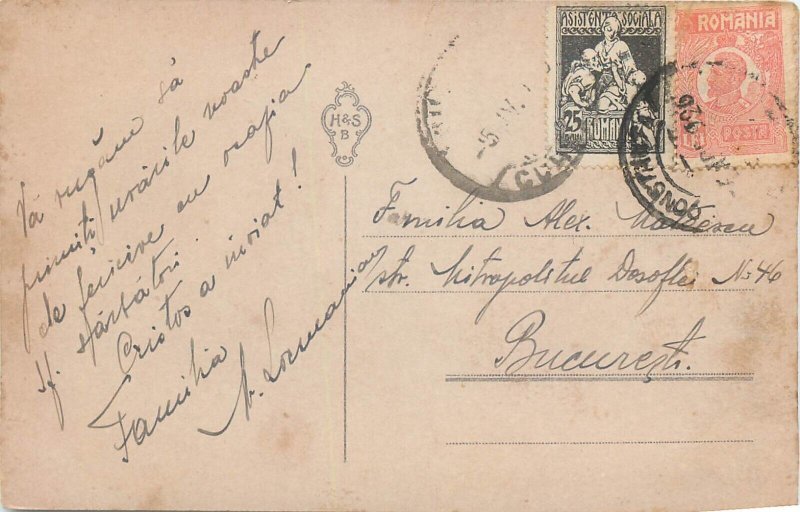 Vă rugăm să
primiți urările noastre
de fericire cu ocazia
sf. sărbători.
Cristos a înviat!
Familia
H&S
B
ASISTENȚA SOCIALA
25
ROMANIA
ROMANIA
POSTA
CONSTANȚA
Familia Alex.
str. Mitropolitul Dosoftei No 46
București.